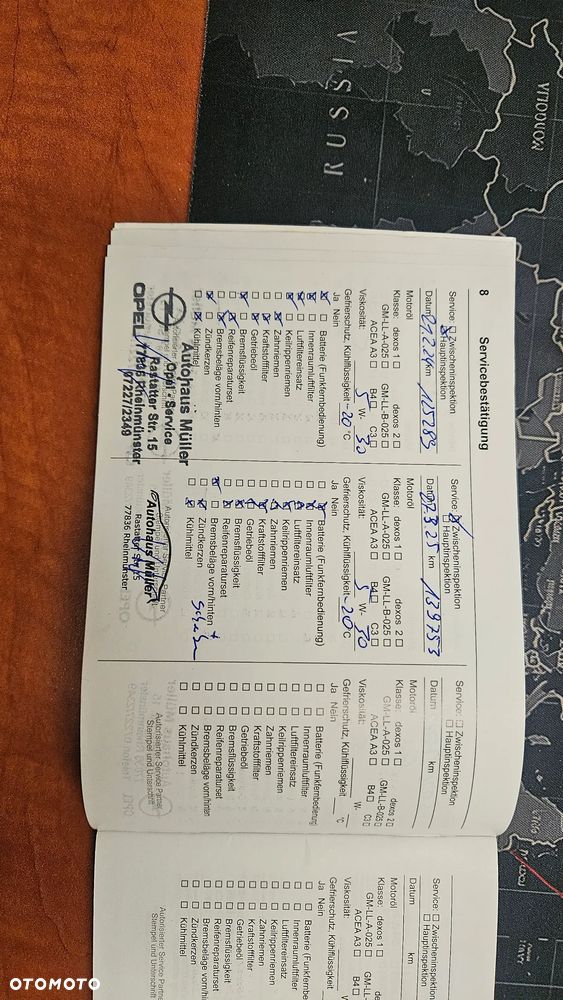 RUSSIA
MONGOLIA
U
8
Servicebestätigung
Service: Zwischeninspektion
Hauptinspektion
Datum km 115283
Motoröl
Klasse: dexos 1 dexos 2
GM-LL-A-025 GM-LL-B-025
ACEA A3 B4 C3
Viskosität: 5 W- 30
Gefrierschutz, Kühlflüssigkeit -20 °C
Ja Nein
Batterie (Funkfernbedienung)
Innenraumluftfilter
Luftfiltereinsatz
Keilrippenriemen
Zahnriemen
Kraftstofffilter
Getriebeöl
Bremsflüssigkeit
Reifenreparaturset
Bremsbeläge vorn/hinten
Zündkerzen
Kühlmittel
Autohaus Müller
Opel - Service
Rastatter Str. 15
77836 Rheinmünster
07227/2349
OPEL
Service: Zwischeninspektion
Hauptinspektion
Datum km
Motoröl
Klasse: dexos 1 dexos 2
GM-LL-A-025 GM-LL-B-025
ACEA A3 B4 C3
Viskosität: 5 W- 30
Gefrierschutz, Kühlflüssigkeit -20 °C
Ja Nein
Batterie (Funkfernbedienung)
Innenraumluftfilter
Luftfiltereinsatz
Keilrippenriemen
Zahnriemen
Kraftstofffilter
Getriebeöl
Bremsflüssigkeit
Reifenreparaturset
Bremsbeläge vorn/hinten +
Zündkerzen
Kühlmittel
Autohaus Müller
77836 Rheinmünster
Service: Zwischeninspektion
Hauptinspektion
Datum km
Motoröl
Klasse: dexos 1 dexos 2
GM-LL-A-025 GM-LL-B-025
ACEA A3 B4 C3
Viskosität: W-
Gefrierschutz, Kühlflüssigkeit °C
Ja Nein
Batterie (Funkfernbedienung)
Innenraumluftfilter
Luftfiltereinsatz
Keilrippenriemen
Zahnriemen
Kraftstofffilter
Getriebeöl
Bremsflüssigkeit
Reifenreparaturset
Bremsbeläge vorn/hinten
Zündkerzen
Kühlmittel
Autorisierter Service Partner
Stempel und Unterschrift
Service: Zwischeninspektion
Hauptinspektion
Datum km
Motoröl
Klasse: dexos 1
GM-LL-A-025
ACEA A3 B4
Viskosität: W-
Gefrierschutz, Kühlflüssigkeit
Ja Nein
Batterie (Funkfernbe
Innenraumluftfilter
Luftfiltereinsatz
Keilrippenriemen
Zahnriemen
Kraftstofffilter
Getriebeöl
Bremsflüssigkeit
Reifenreparaturset
Bremsbeläge vorn/hinten
Zündkerzen
Kühlmittel
Autorisierter Service Partner
Stempel und Unterschrift
OTOMOTO